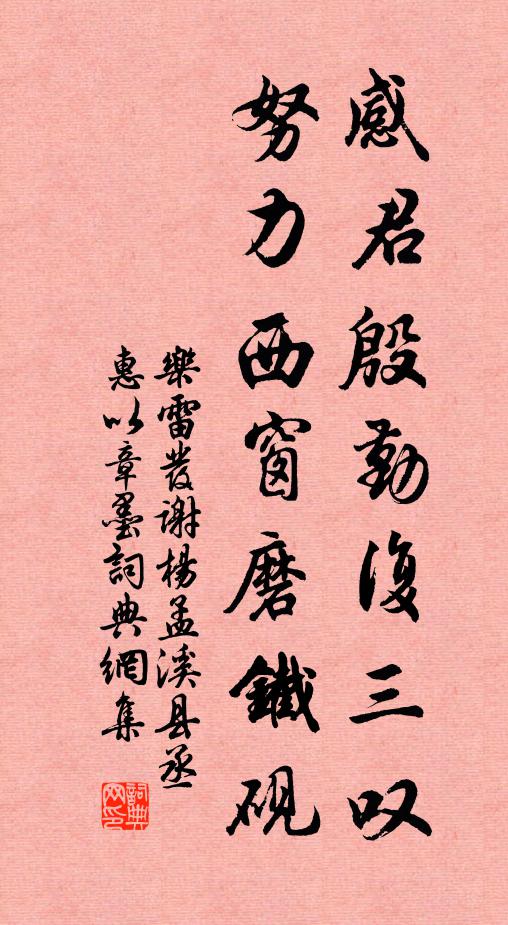 感君殷勤復三叹
努力西窗磨鐵硯
樂雷發谢楊孟溪县丞
惠以章墨詞典網集
詞典网印